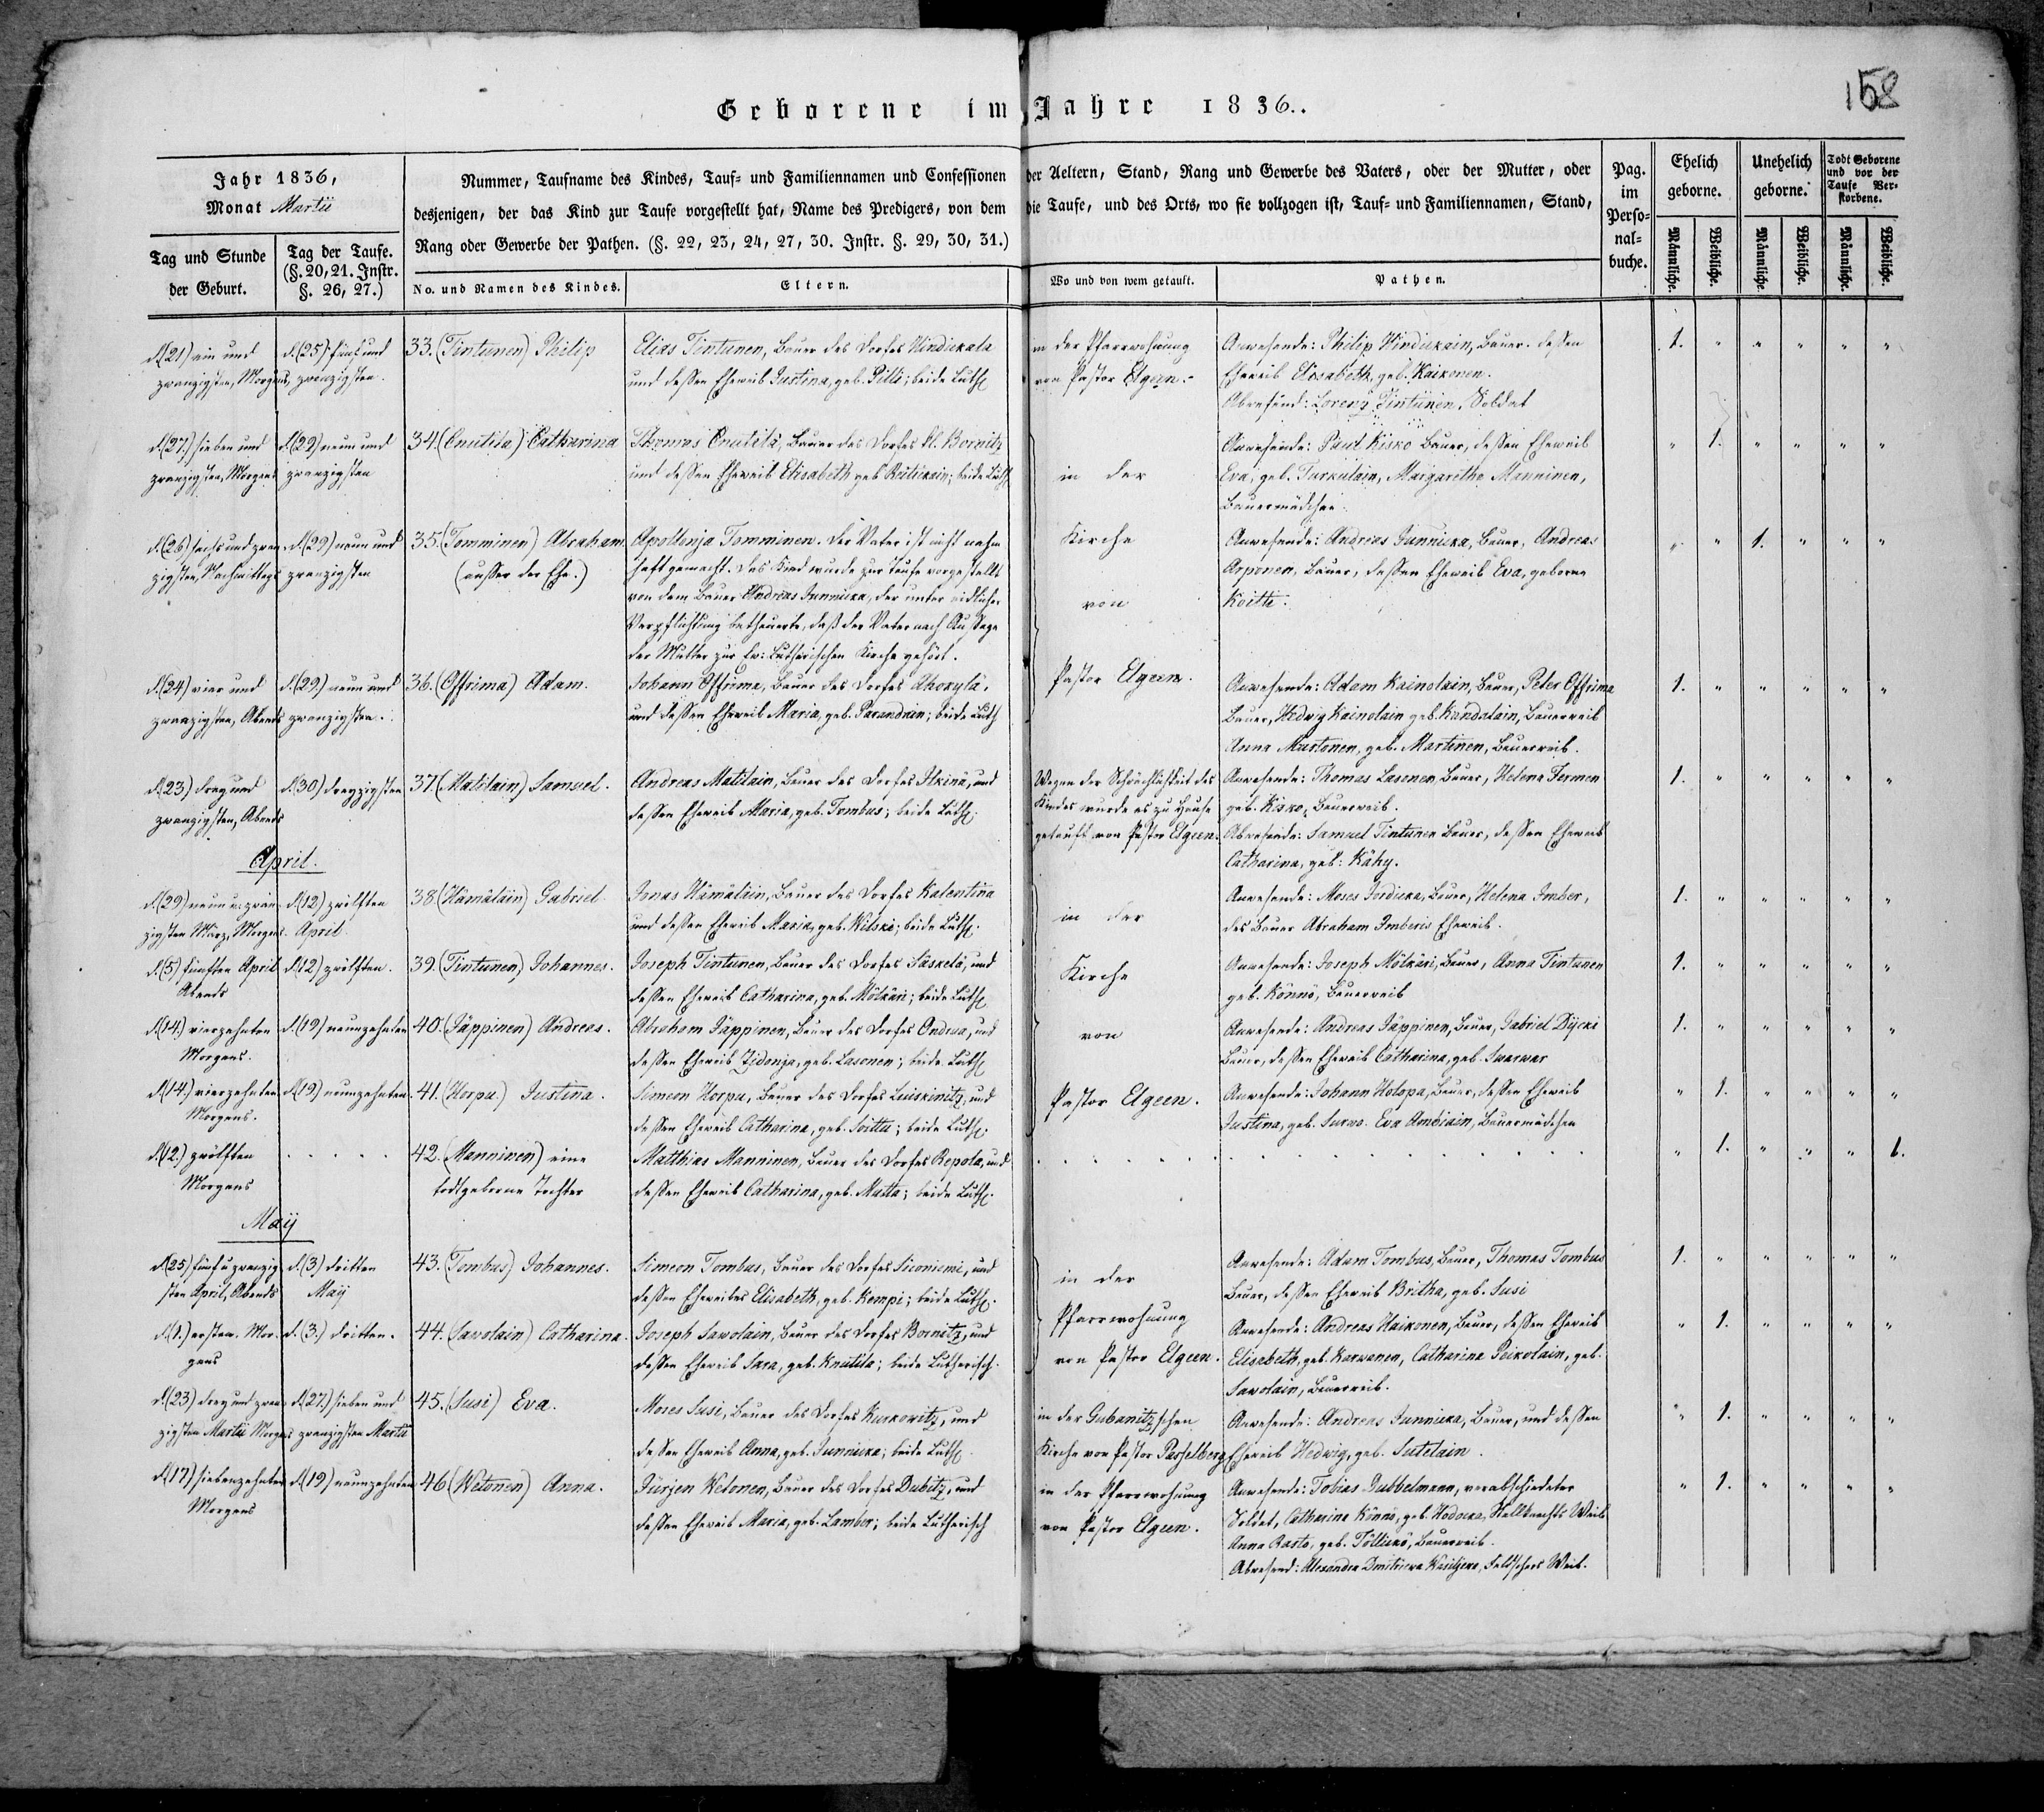 158
Geborene im Jahre 1836..
Jahr 1836,
Monat Martii
Tag und Stunde
der Geburt.
Tag der Taufe.
(§. 20, 21. Instr.
§. 26, 27.)
Nummer, Taufname des Kindes, Tauf- und Familiennamen und Confessionen der Aeltern, Stand, Rang und Gewerbe des Vaters, oder der Mutter, oder
desjenigen, der das Kind zur Taufe vorgestellt hat, Name des Predigers, von dem die Taufe, und des Orts, wo sie vollzogen ist, Tauf- und Familiennamen, Stand,
Rang oder Gewerbe der Pathen. (§. 22, 23, 24, 27, 30. Instr. §. 29, 30, 31.)
No. und Namen des Kindes.
Eltern.
Wo und von wem getauft.
Pathen.
Pag.
im
Perso-
nal-
buche.
Ehelich
geborne.
Unehelich
geborne.
Todt Geborene
und vor der
Taufe Ver-
storbene.
Männliche.
Weibliche.
Männliche.
Weibliche.
Männliche.
Weibliche.
d.(21) ein und
zwanzigsten, Morgens
d.(25) fünf und
zwanzigsten.
33. (Tintunen) Philip
Elias Tintunen, Bauer des Dorfes Hindikala
und dessen Eheweib Justina, geb. Pilli; beide Luth.
in der Pfarrwohnung
von Pastor Elgeen.
Anwesende: Philip Hindikain, Bauer. dessen
Eheweib Elisabeth, geb. Kaikonen.
Abwesend: Lorenz Tintunen, Soldat
1. " " " " "
d.(27.) sieben und
zwanzigsten, Morgens
d.(29) neun und
zwanzigsten
34. (Cnutila) Catharina
Thomas Cnutila, Bauer des Dorfes Kl. Bornitz
und dessen Eheweib Elisabeth geb. ; beide Luth.
in der
Anwesende: Paul Kisko Bauer, dessen Eheweib
Eva, geb. Turkulain, Margaretha Manninen,
Bauermädchen.
" 1. " " " "
d.(26) sechs und zwan-
zigsten, Nachmittags
d.(29) neun und
zwanzigsten
35. (Tomminen) Abraham.
(ausser der Ehe.)
Apollonja Tomminen. Der Vater ist nicht nahm-
haft gemacht. Das Kind wurde zur Taufe vorgestellt
von dem Bauer Andreas Junnicka, der unter eidlicher
Verpflichtung betheuerte, daß der Vater nach Aussage
der Mutter zur Ev: Lutherischen Kirche gehört.
Kirche
von
Anwesende: Andreas Junnicka, Bauer, Andreas
Arponen, Bauer, dessen Eheweib Eva, geborne
Koitti.
" " 1. " " "
d.(24) vier und
zwanzigsten, Abends
d.(29.) neun und
zwanzigsten.
36. (Offrima) Adam.
Johann Offrima, Bauer des Dorfes Ahokylä,
und dessen Eheweib Maria, geb. Parandain; beide Luth
Pastor Elgeen.
Anwesende: Adam Kainolain, Bauer, Peter Offrima
Bauer, Hedwig Kainolain geb. Kandalain, Bauerweib
Anna Mustonen, geb. Martinen, Bauerweib.
1. " " " " "
d.(23) drey und
zwanzigsten, Abends
d.(30) dreyzigsten
37. (Matilain) Samuel.
Andreas Matilain, Bauer des Dorfes Ilkinä, und
dessen Eheweib Maria, geb. Tombus; beide Luth.
Wegen der Schwächlichkeit des
Kindes wurde es zu Hause
getauft von Pastor Elgeen.
Anwesende: Thomas Lasonen, Bauer, Helena Termen
geb. Kisko, Bauerweib.
Abwesende: Samuel Tintunen Bauer, dessen Eheweib
Catharina, geb: Kähy.
1. " " " " "
April.
d.(29) neun u. zwan-
zigsten März, Morgens.
d.(12) zwölften
April
38. (Hämäläin) Gabriel
Jonas Hämäläin, Bauer des Dorfes Kalentina
und dessen Eheweib Maria, geb. Kilski; beide Luth.
in der
Anwesende: Moses Jordicka, Bauer, Helena Imber,
des Bauer Abraham Imberis Eheweib.
1. " " " " "
d.(5) fünften April
Abends
d.(12) zwölften.
39. (Tintunen) Johannes.
Joseph Tintunen, Bauer des Dorfes Säskelä, und
dessen Eheweib Catharina, geb. Mölkäri; beide Luth.
Kirche
Anwesende: Joseph Mölkäri, Bauer, Anna Tintunen
geb. Könnö, Bauerweib
1. " " " " "
d.(14.) vierzehnten
Morgens.
d.(19) neunzehnten
40. (Jäppinen) Andreas.
Abraham Jäppinen, Bauer des Dorfes Ondrua, und
dessen Eheweib Zidonja, geb. Lasonen; beide Luth.
von
Anwesende: Andreas Jäppinen, Bauer, Gabriel
Bauer, dessen Eheweib Catharina, geb. Suarwar
1. " " " " "
d.(14.) vierzehnten
Morgens.
d.(19) neunzehnten.
41. (Horpu) Justina.
Simeon Horpu, Bauer des Dorfes Luiskinitz, und
dessen Eheweib Catharina, geb. Soittu; beide Luth.
Pastor Elgeen.
Anwesende: Johann Holopa, Bauer, dessen Eheweib
Justina, geb. Surus. Eva Andiain, Bauermädchen
" 1. " " " "
d.(12.) zwölften
Morgens
. . . . .
42. (Manninen) eine
todtgeborne Tochter
Matthias Manninen, Bauer des Dorfes Repola, und
dessen Eheweib Catharina, geb. Matta; beide Luth.
" 1. " " " 1.
Maij
d.(25) fünf u zwanzig-
sten April, Abends
d.(3) dritten
Maij
43. (Tombus) Johannes.
Simeon Tombus, Bauer des Dorfes Siconiemi, und
dessen Eheweibes Elisabeth, geb. Kempi; beide Luth.
in der
Anwesende: Adam Tombus, Bauer, Thomas Tombus
Bauer, dessen Eheweib Britha, geb. Susi
1. " " " " "
d.(1.) ersten. Mor-
gens
d. (3.) dritten.
44. (Sawolain) Catharina.
Joseph Sawolain, Bauer des Dorfes Bornitz, und
dessen Eheweib Sara, geb. Knutila; beide Lutherisch.
Pfarrwohnung
von Pastor Elgeen.
Anwesende: Andreas Haikonen, Bauer, dessen Eheweib
Elisabeth, geb. Karwanen, Catharina Peikolain, geb.
Sawolain, Bauerweib.
" 1. " " " "
d.(23) drey und zwan-
zigsten Martii Morgens
d.(27.) sieben und
zwanzigsten Martii
45. (Susi) Eva.
Moses Susi, Bauer des Dorfes Kurkowitz, und
dessen Eheweib Anna, geb. Junnicka; beide Luth.
in der Gubanitzschen
Kirche von Pastor
Anwesende: Andreas Junnicka, Bauer, und dessen
Eheweib Hedwig, geb. Sutelain.
" 1. " " " "
d.(17) siebenzehnten
Morgens
d.(19) neunzehnten
46 (Wetonen) Anna.
Jürjen Wetonen, Bauer des Dorfes Dubitz, und
dessen Eheweib Maria, geb. Lambor; beide Lutherisch
in der Pfarrwohnung
von Pastor Elgeen.
Anwesende: Tobias Dubbelmann, verabschiedeter
Soldat, Catharina Könnö, geb. Hodocka, Stallknechts Weib
Anna Rasto, geb. Pöllickö, Bauerweib.
Abwesend: Alexandra Dmitriewa , Feldscheers Weib.
" 1. " " " "